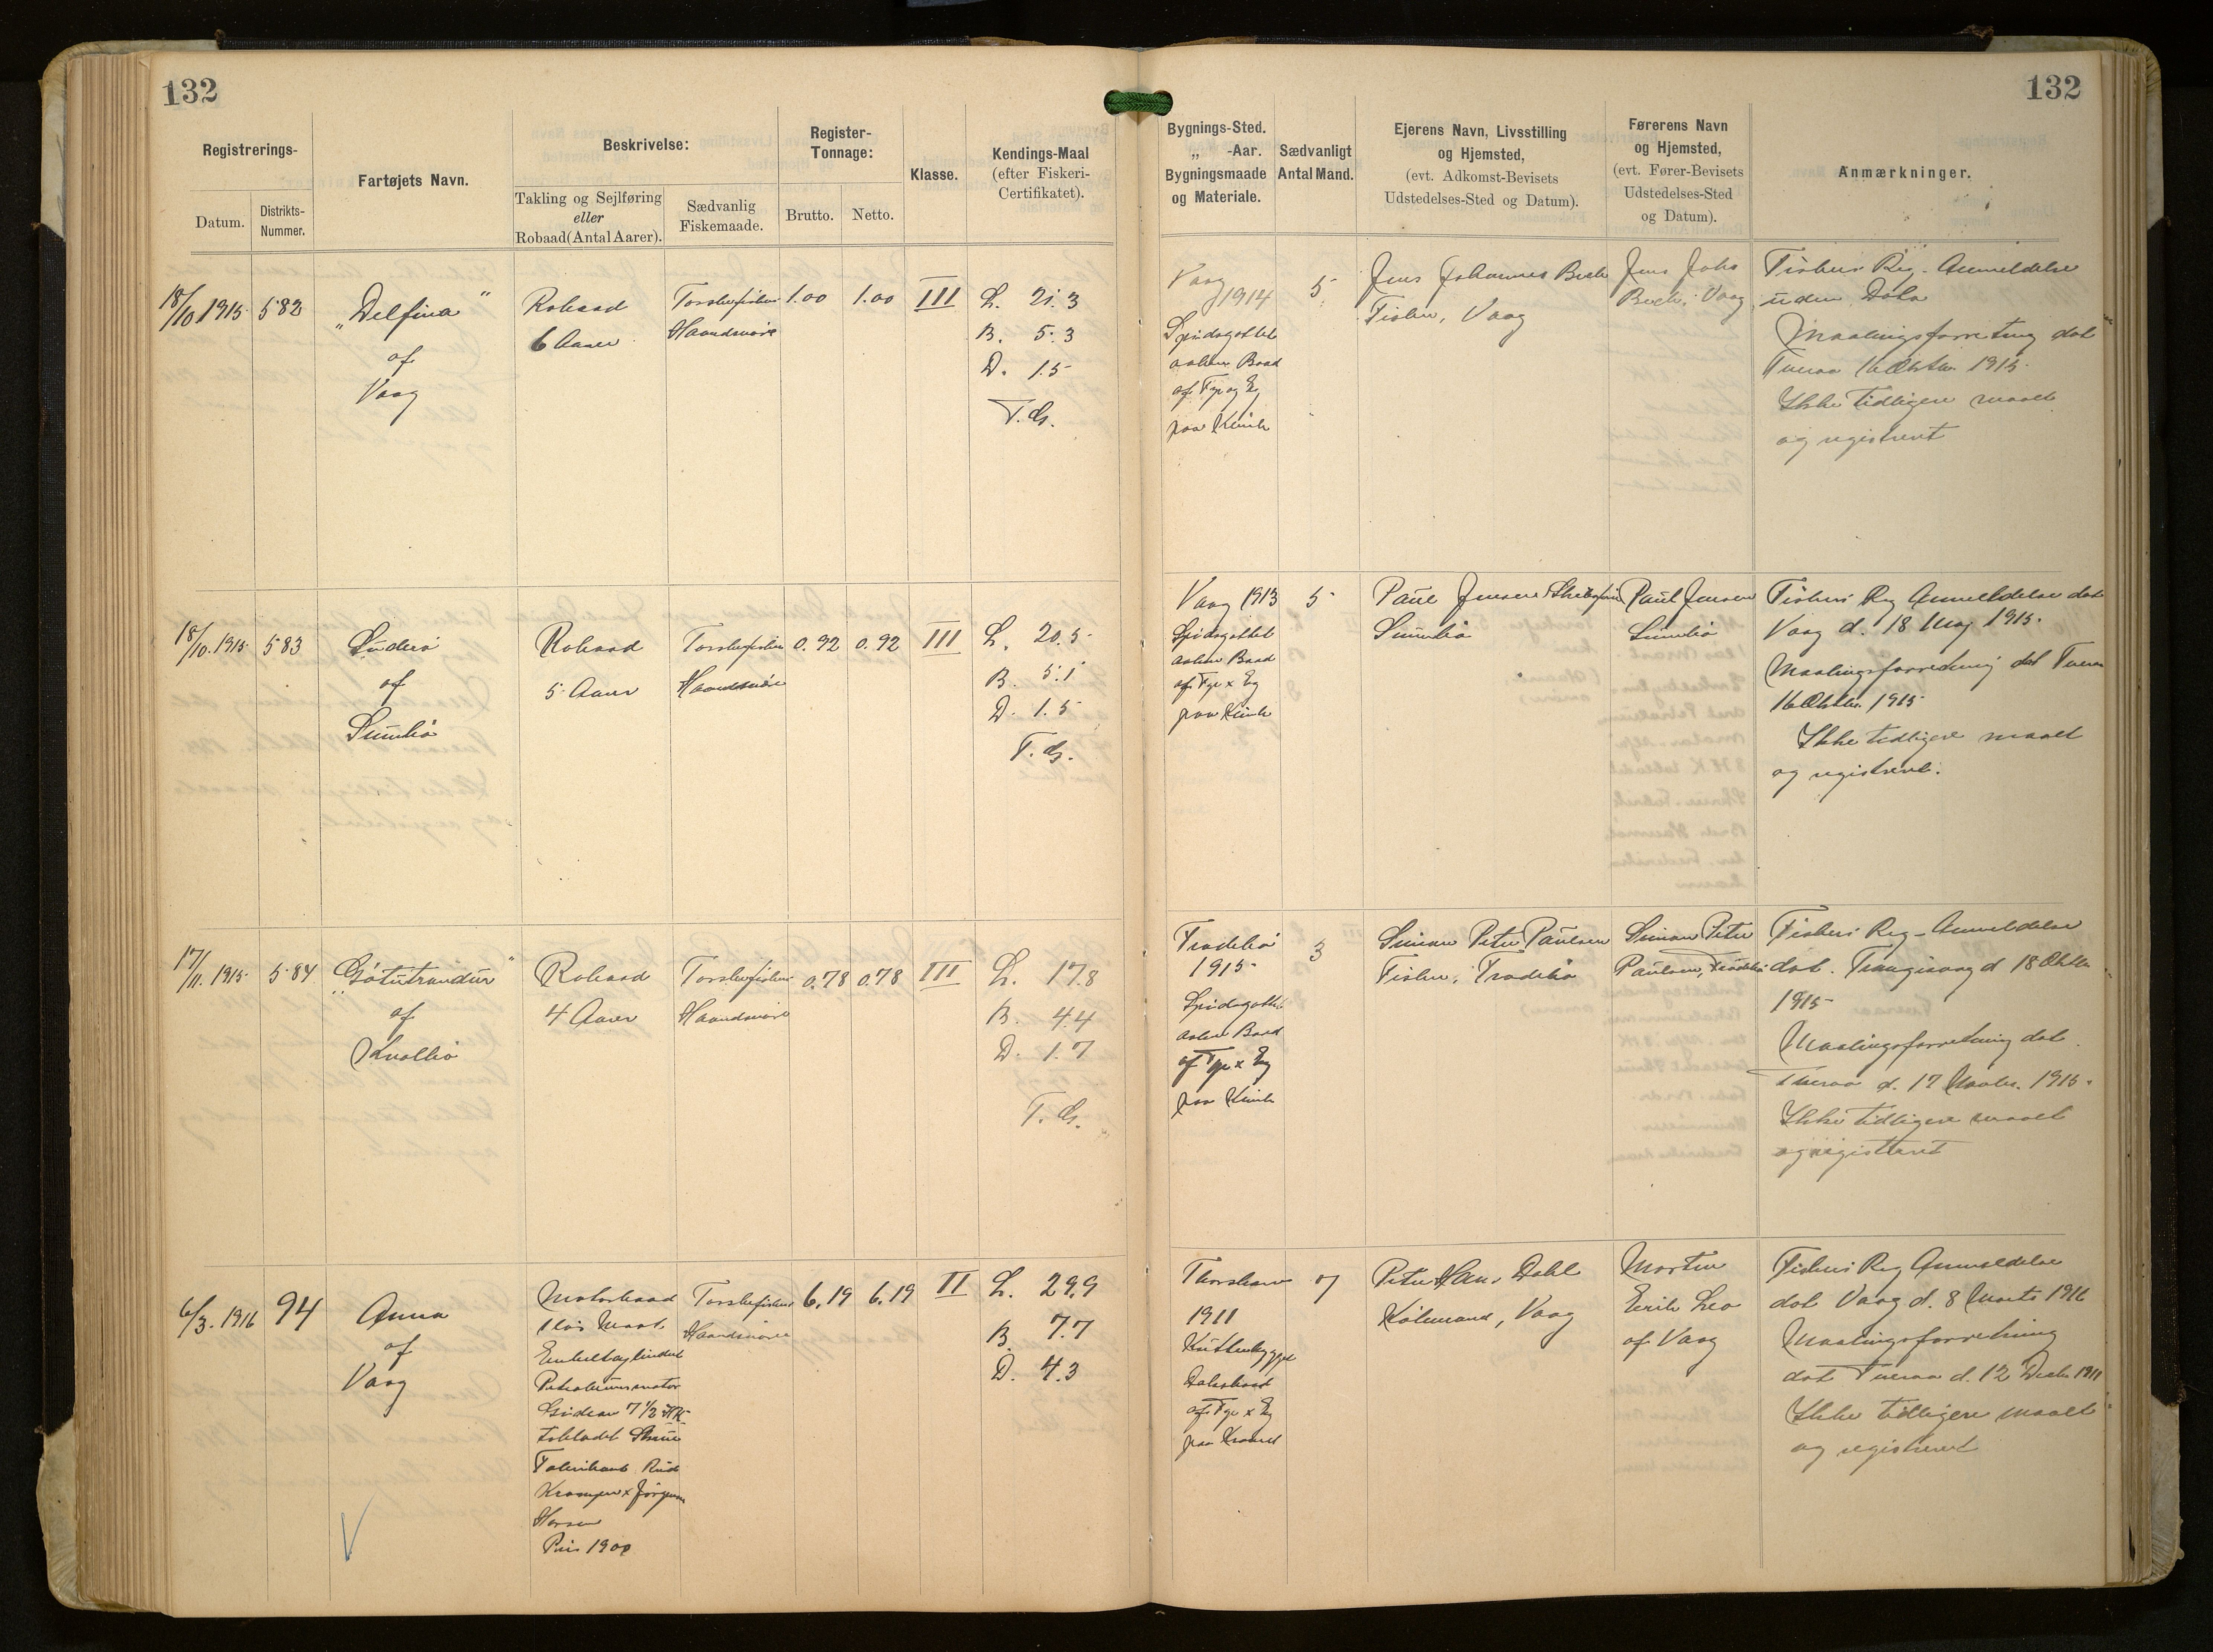 132
132
Registrerings-
Datum.
Distrikts-
Nummer.
Fartøjets Navn.
Beskrivelse:
Takling og Sejlføring
eller
Robaad (Antal Aarer).
Sædvanlig
Fiskemaade.
Register-
Tonnage:
Brutto.
Netto.
Klasse.
Kendings-Maal
(efter Fiskeri-
Certifikatet).
Bygnings-Sted.
„ -Aar.
Bygningsmaade
og Materiale.
Sædvanligt
Antal Mand.
Ejerens Navn, Livsstilling
og Hjemsted,
(evt. Adkomst-Bevisets
Udstedelses-Sted og Datum).
Førerens Navn
og Hjemsted,
(evt. Fører-Bevisets
Udstedelses-Sted
og Datum).
Anmærkninger.
18/10 1915
582
„Delfina"
af
Vaag
Robaad
6 Aarer
Torskefiskeri
Haandsnøre
1.00
1.00
III
L. 21.3
B. 5.3
D. 1.5
T. G.
Vaag
1914
Spidsgattet
aaben Baad
af Fyr og Eg
paa Klink
5
Jens Johannes Bech
Fisker, Vaag
Jens Johs
Bech, Vaag
Fiskeri Reg. Anmeldelse
uden Dato
Maalingsforretning dat
Tveraa 16 Oktbr. 1915.
Ikke tidligere maalt
og registreret
18/10. 1915
583
Suderø
af
Sumbø
Robaad
5 Aarer
Torskefiskeri
Haandsnøre
0.92
0.92
III
L. 20.5
B. 5.1
D. 1.5
T. G.
Vaag 1913
Spidsgattet
aaben Baad
af Fyr x Eg
paa Klink
5
Poul Jensen
Sumbø
Poul Jensen
Sumbø
Fiskeri Reg Anmeldelse dat
Vaag d. 18 Maj 1915.
Maalingsforretning dat Tveraa
16 Oktbr. 1915
Ikke tidligere maalt
og registreret.
17/11. 1915
584
„Gøtutrondur"
af
Kvalbø
Robaad
4 Aarer
Torskefiskeri
Haandsnøre
0.78
0.78
III
L. 17.8
B. 4.4
D. 1.7
T. G.
Frodebø
1915
Spidsgattet
aaben Baad
af Fyr x Eg
paa Klink
3
Simon Peter Poulsen
Fisker, Frodebø
Simon Peter
Poulsen, Frodebø
Fiskeri Reg-Anmeldelse
dat. Trangisvaag d 18 Oktbr
1915
Maalingsforretning dat.
Tveraa d. 17 Novbr. 1915.
Ikke tidligere maalt
og registreret
6/3. 1916
94
Anna
af
Vaag
Motorbaad
1 løs Mast
Enkeltcylindret
Petroleumsmotor
Gideon 7 1/2 HK
tobladet Skrue
Fabrikant Rud
Kramper x Jørgensen
Horsens
Pris 1900
Torskefiskeri
Haandsnøre
6.19
6.19
II
L. 29.9
B. 7.7
D. 4.3
Thorshavn
1911
Kutterbygget
Dæksbaad
af Fyr x Eg
paa Kravel
7
Peter Hans Dahl
Købmand, Vaag
Martin
Eerik Leo
af Vaag
Fiskeri Reg Anmeldelse
dat Vaag d. 8 Marts 1916
Maalingsforretning
dat Tveraa d. 12 Decbr 1911
Ikke tidligere maalt
og registreret